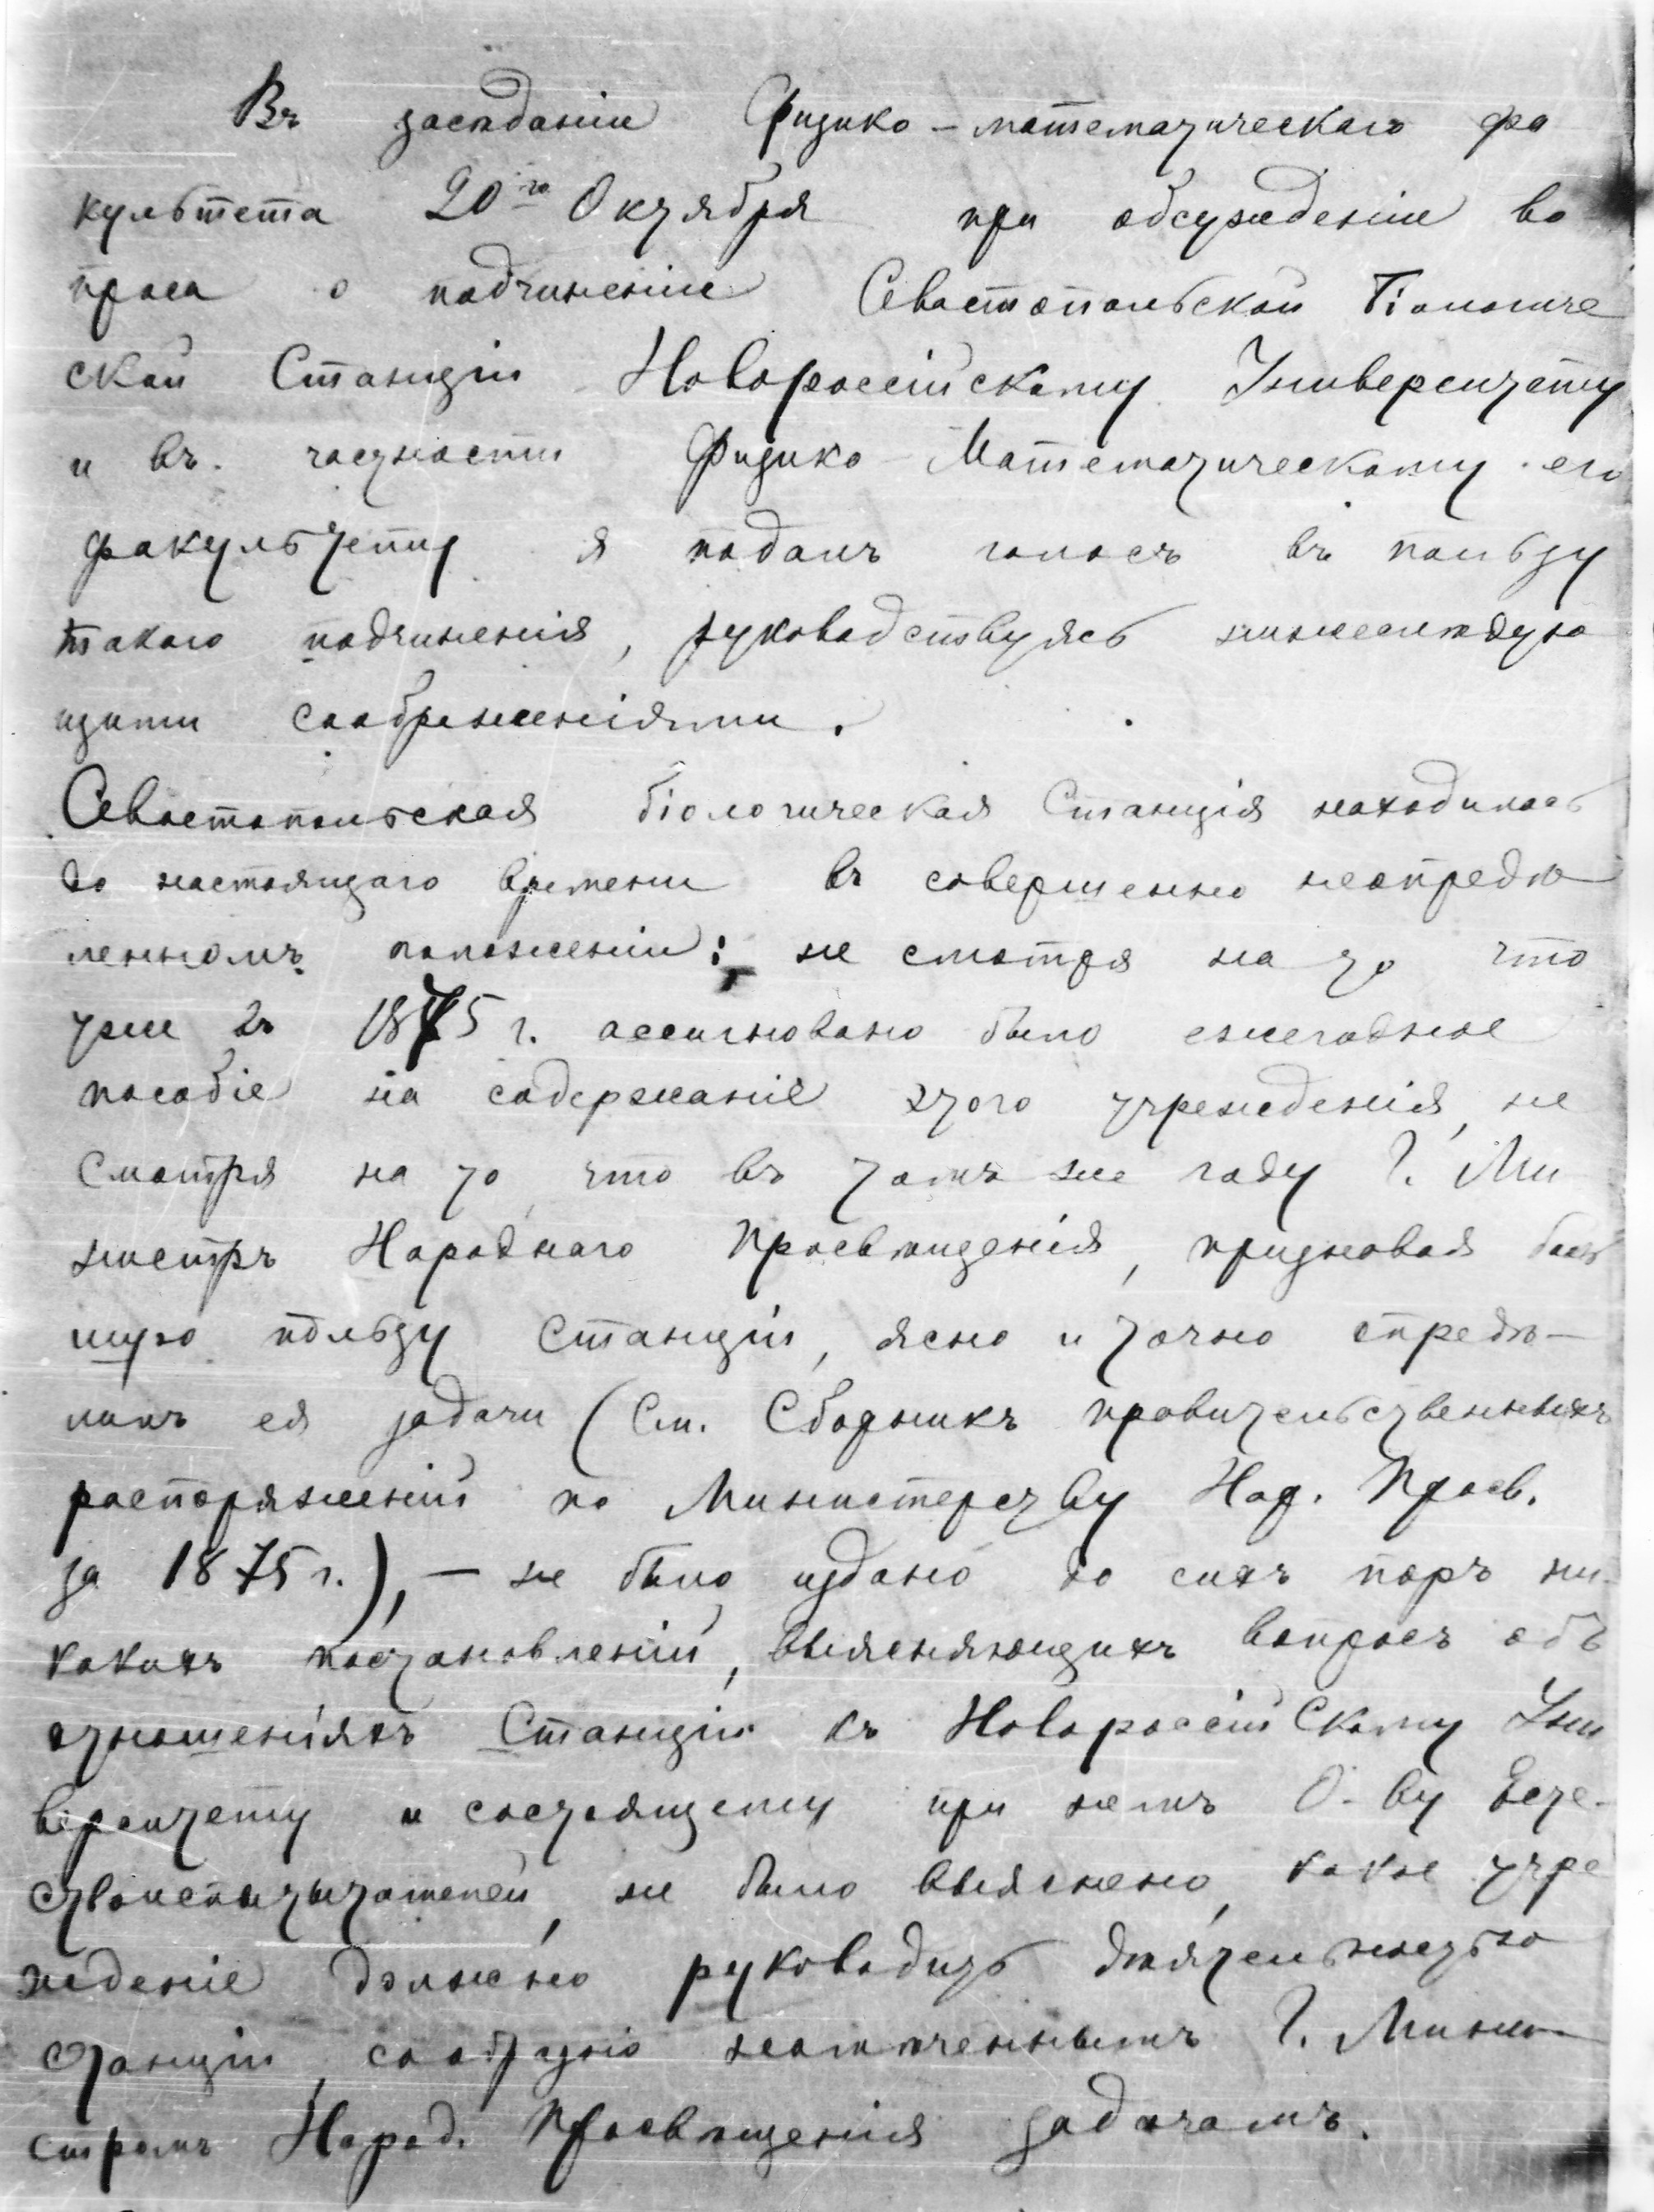 Въ засѣданіи Физико-математическаго фа
культета 20го Октября при обсужденіи во
проса о подчиненіи Севастопольской Біологиче
ской Станціи Новороссійскому Университету
и въ частности Физико-Математическому его
факультету я подалъ голосъ въ пользу
такого подчиненія, руководствуясь нижеслѣдую
щими соображеніями.
Севастопольская біологическая Станція находилась
до настоящаго времени въ совершенно неопредѣ
ленномъ положеніи: не смотря на то что
уже въ 1875 г. ассигновано было ежегодное
пособіе на содержаніе этого учрежденія, не
смотря на то, что въ томъ же году Г. Ми
нистръ Народнаго Просвѣщенія, признавая боль
шую пользу Станціи, ясно и точно опредѣ-
лилъ ея задачи (См. Сборникъ правительственныхъ
распоряженій по Министерству Нар. Просв.
за 1875 г.), — не было издано до сихъ поръ ни-
какихъ постановленій, выясняющихъ вопросъ объ
отношеніяхъ Станціи къ Новороссійскому Уни
верситету и состоящему при немъ О-ву Есте-
ствоиспытателей, не было выяснено, какое учре
жденіе должно руководить дѣятельностью
станціи, сообразно намѣченнымъ Г. Мини-
стромъ Народ. Просвѣщенія задачамъ.